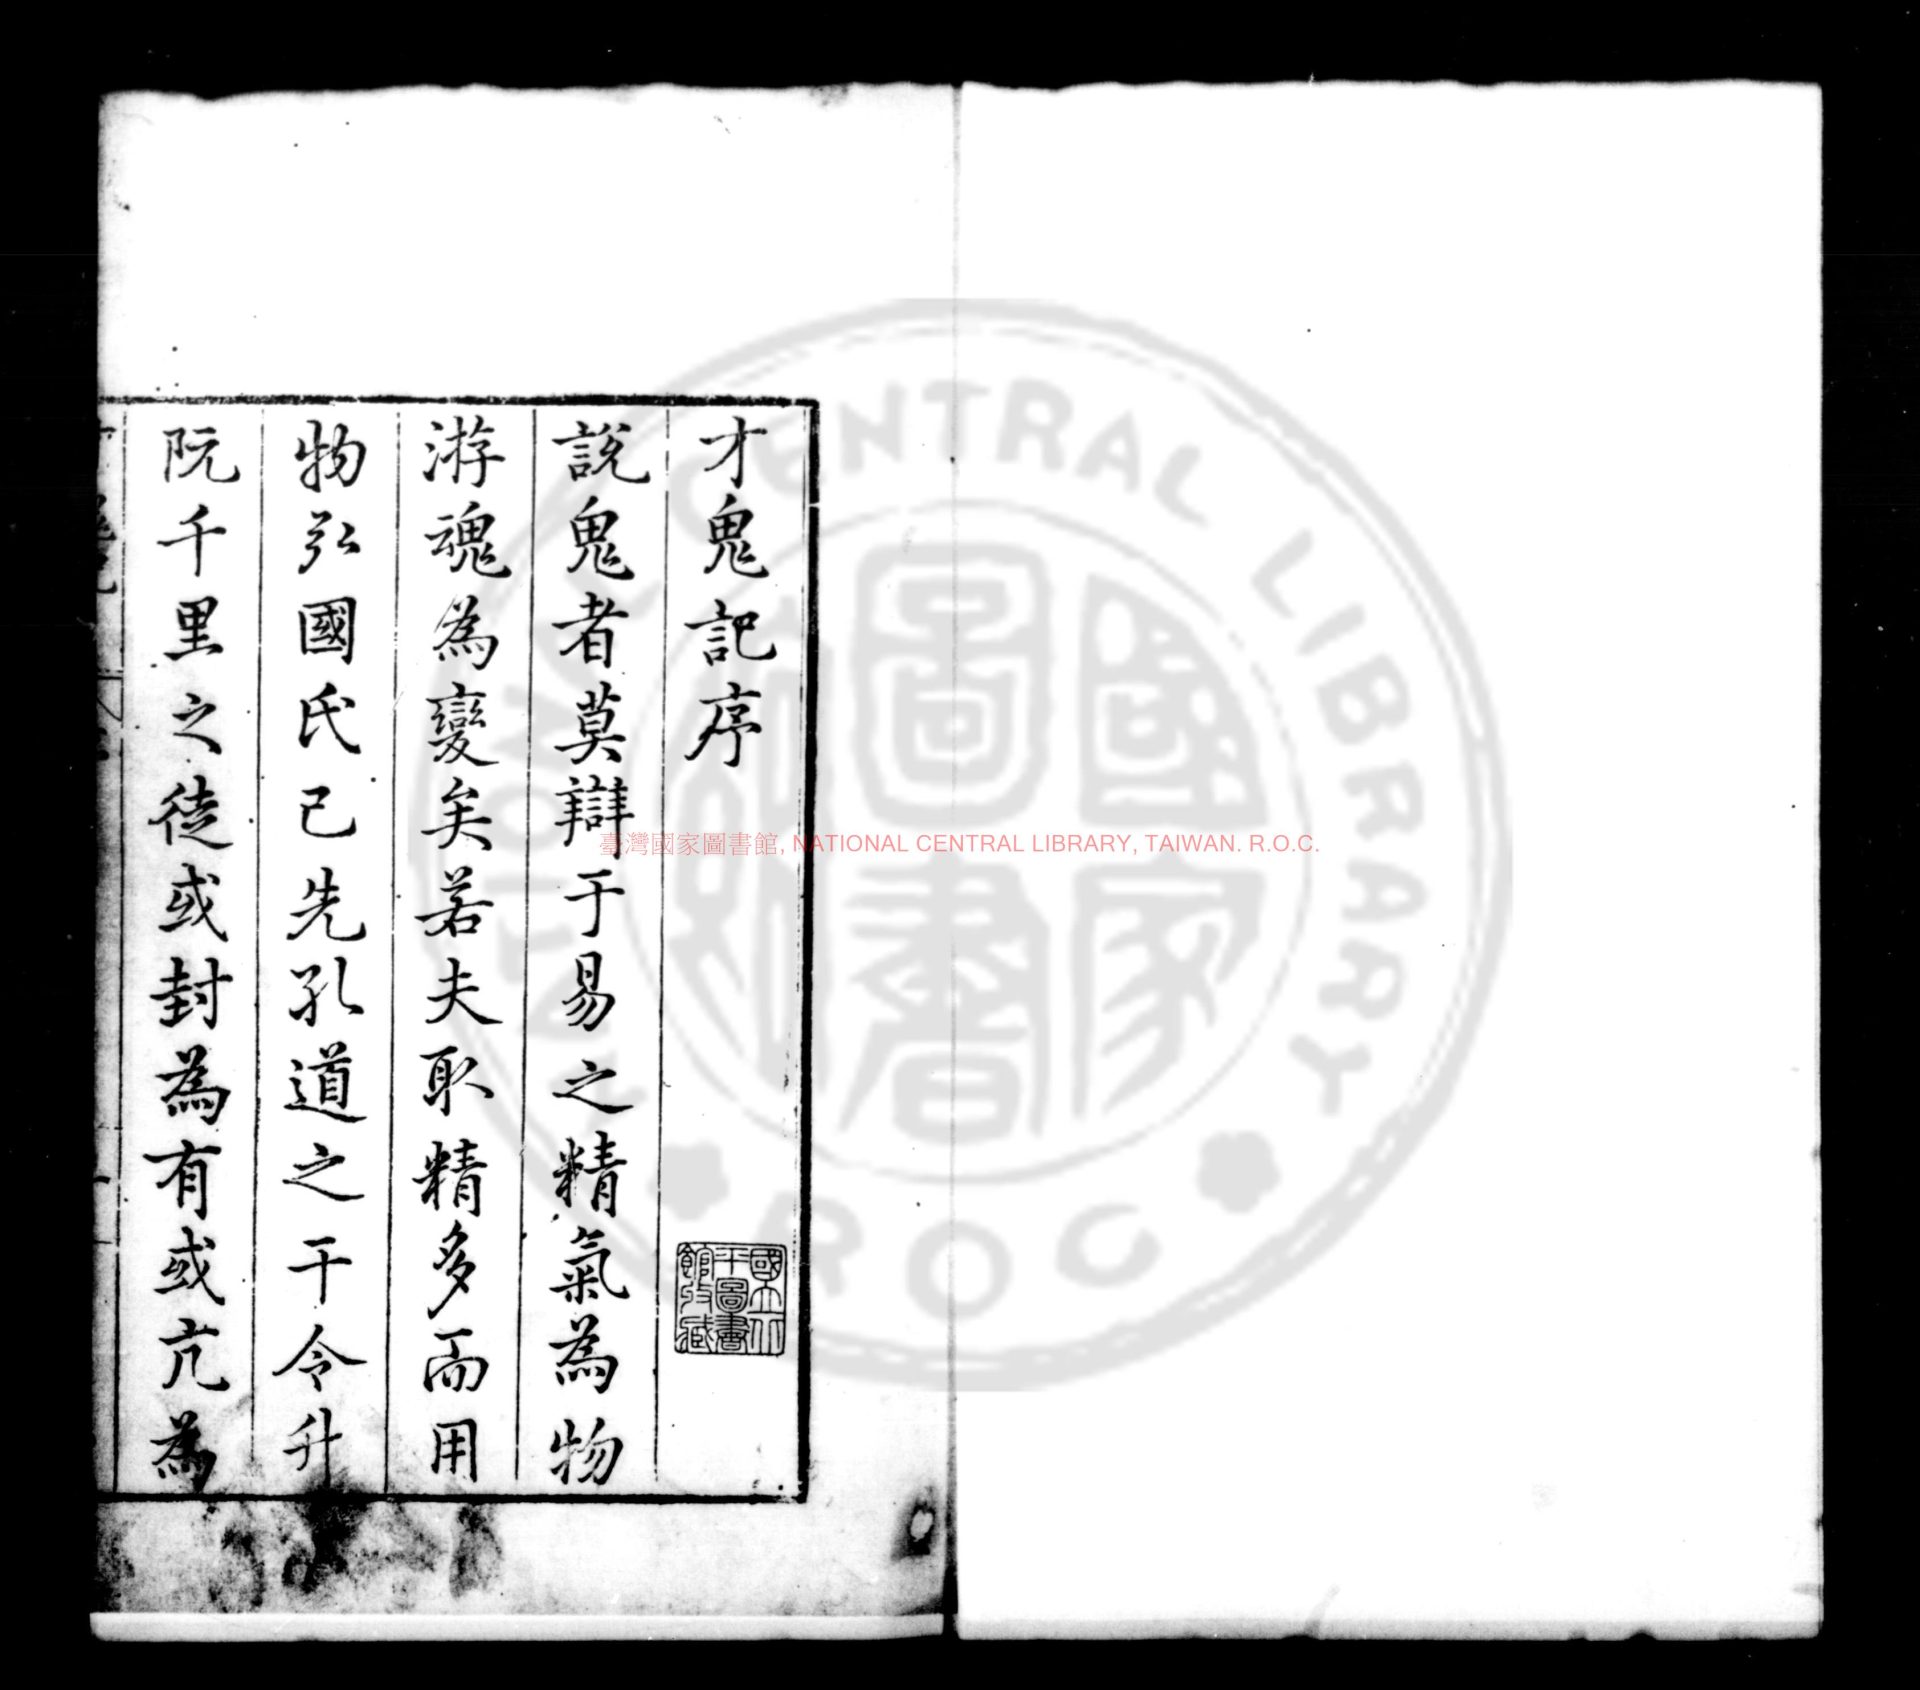 才鬼記序
說鬼者莫辯于易之精氣為物
游魂為變矣若夫取精多而用
物弘國氏已先孔道之干令升
阮千里之徒或封為有或亢為
國立北
平圖書
館收藏
臺灣國家圖書館, NATIONAL CENTRAL LIBRARY, TAIWAN. R.O.C.
NATIONAL CENTRAL LIBRARY
ROC
國家
圖書